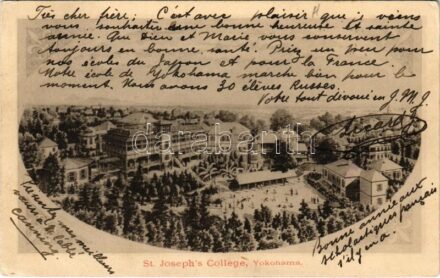 Très cher frère; C'est avec plaisir que je viens
vous souhaiter une bonne heureuse et sainte
année. Que Dieu et Marie vous conservent
toujours en bonne santé. Priez un peu pour
nos écoles du Japon et pour la France
Notre école de Yokohama marche bien pour le
moment. Nous avons 30 élèves Russes.
Votre tout dévoué en J. M. J.
darabanth
St. Joseph's College, Yokohama.
Bonne année aux
français
s'il y en a.